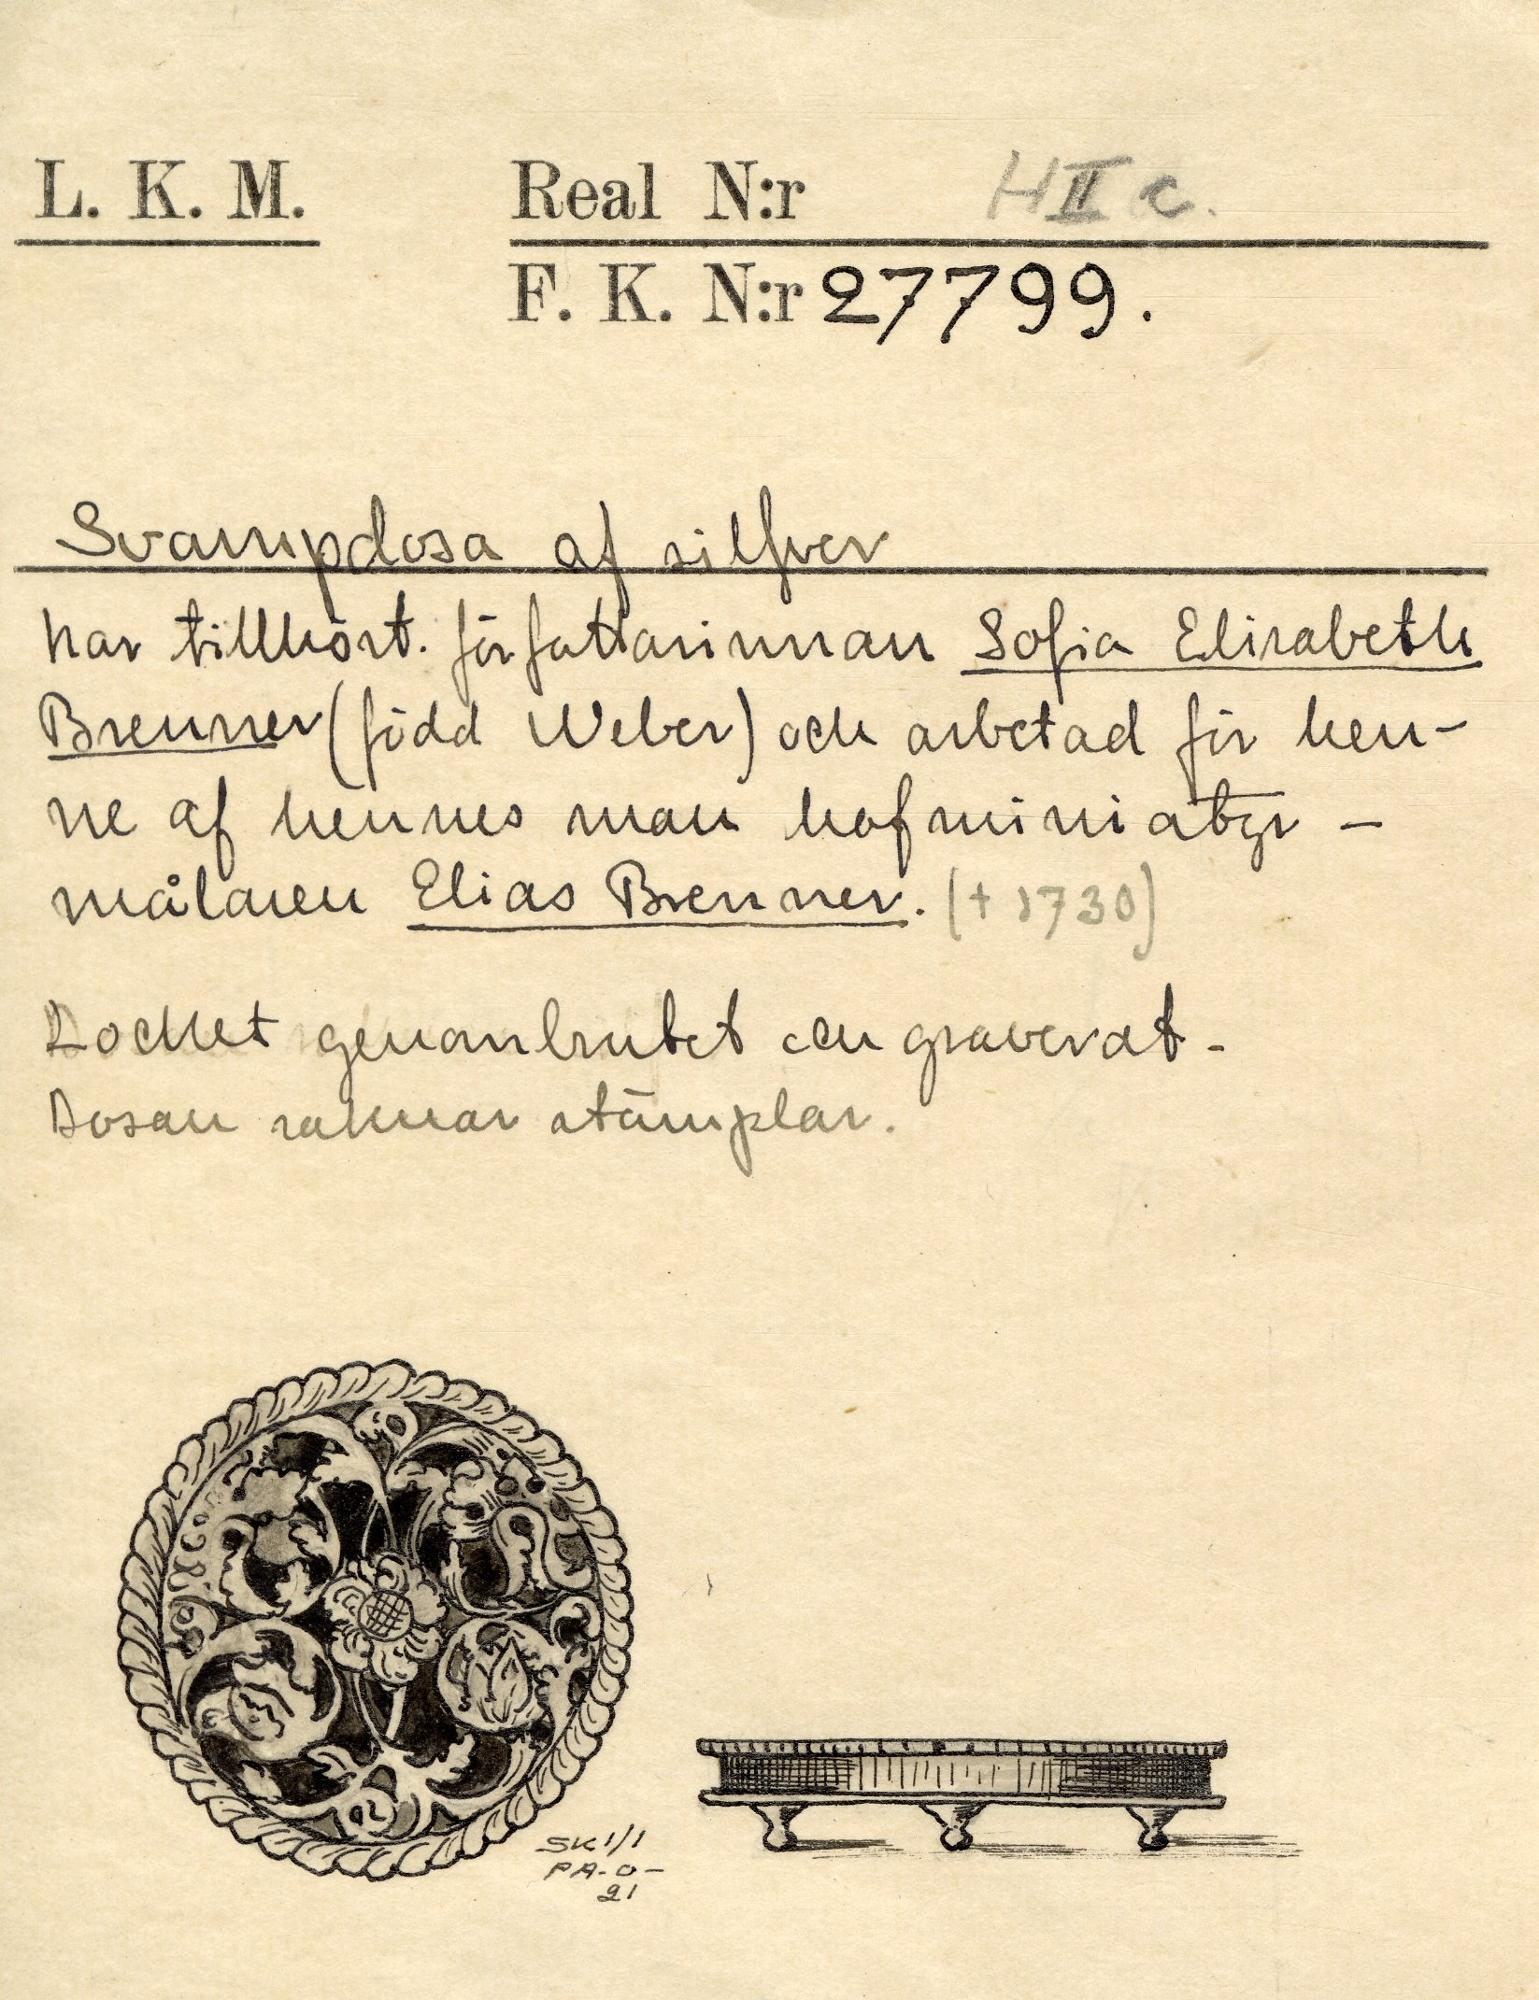 L. K. M. Real N:r HII c.
F. K. N:r 27799.
Svampdosa af silfver
har tillhört. författarinnan Sofia Elisabeth
Brenner (född Weber) och arbetad för hen-
ne af hennes man hofminiatyr -
målaren Elias Brenner. (+ 1730)
Locket genombrutet och graverat -
Dosan saknar stämplar.
SK 1/1
PA-O-
21